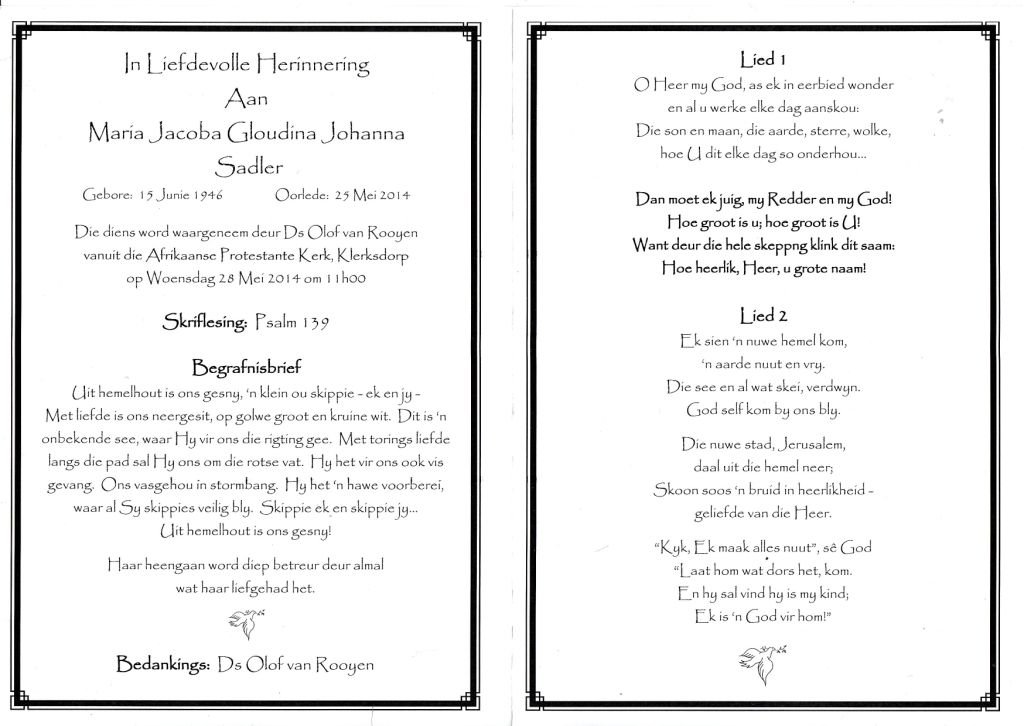 In Liefdevolle Herinnering
Aan
Maria Jacoba Gloudina Johanna
Sadler
Gebore: 15 Junie 1946 Oorlede: 25 Mei 2014
Die diens word waargeneem deur Ds Olof van Rooyen
vanuit die Afrikaanse Protestante Kerk, Klerksdorp
op Woensdag 28 Mei 2014 om 11h00
Skriflesing: Psalm 139
Begrafnisbrief
Uit hemelhout is ons gesny, 'n klein ou skippie - ek en jy -
Met liefde is ons neergesit, op golwe groot en kruine wit. Dit is 'n
onbekende see, waar Hy vir ons die rigting gee. Met torings liefde
langs die pad sal Hy ons om die rotse vat. Hy het vir ons ook vis
gevang. Ons vasgehou in stormbang. Hy het 'n hawe voorberei,
waar al Sy skippies veilig bly. Skippie ek en skippie jy...
Uit hemelhout is ons gesny!
Haar heengaan word diep betreur deur almal
wat haar liefgehad het.
Bedankings: Ds Olof van Rooyen
Lied 1
O Heer my God, as ek in eerbied wonder
en al u werke elke dag aanskou:
Die son en maan, die aarde, sterre, wolke,
hoe U dit elke dag so onderhou...
Dan moet ek juig, my Redder en my God!
Hoe groot is u; hoe groot is U!
Want deur die hele skeppng klink dit saam:
Hoe heerlik, Heer, u grote naam!
Lied 2
Ek sien 'n nuwe hemel kom,
'n aarde nuut en vry.
Die see en al wat skei, verdwyn.
God self kom by ons bly.
Die nuwe stad, Jerusalem,
daal uit die hemel neer;
Skoon soos 'n bruid in heerlikheid -
geliefde van die Heer.
"Kyk, Ek maak alles nuut", sê God
"Laat hom wat dors het, kom.
En hy sal vind hy is my kind;
Ek is 'n God vir hom!"